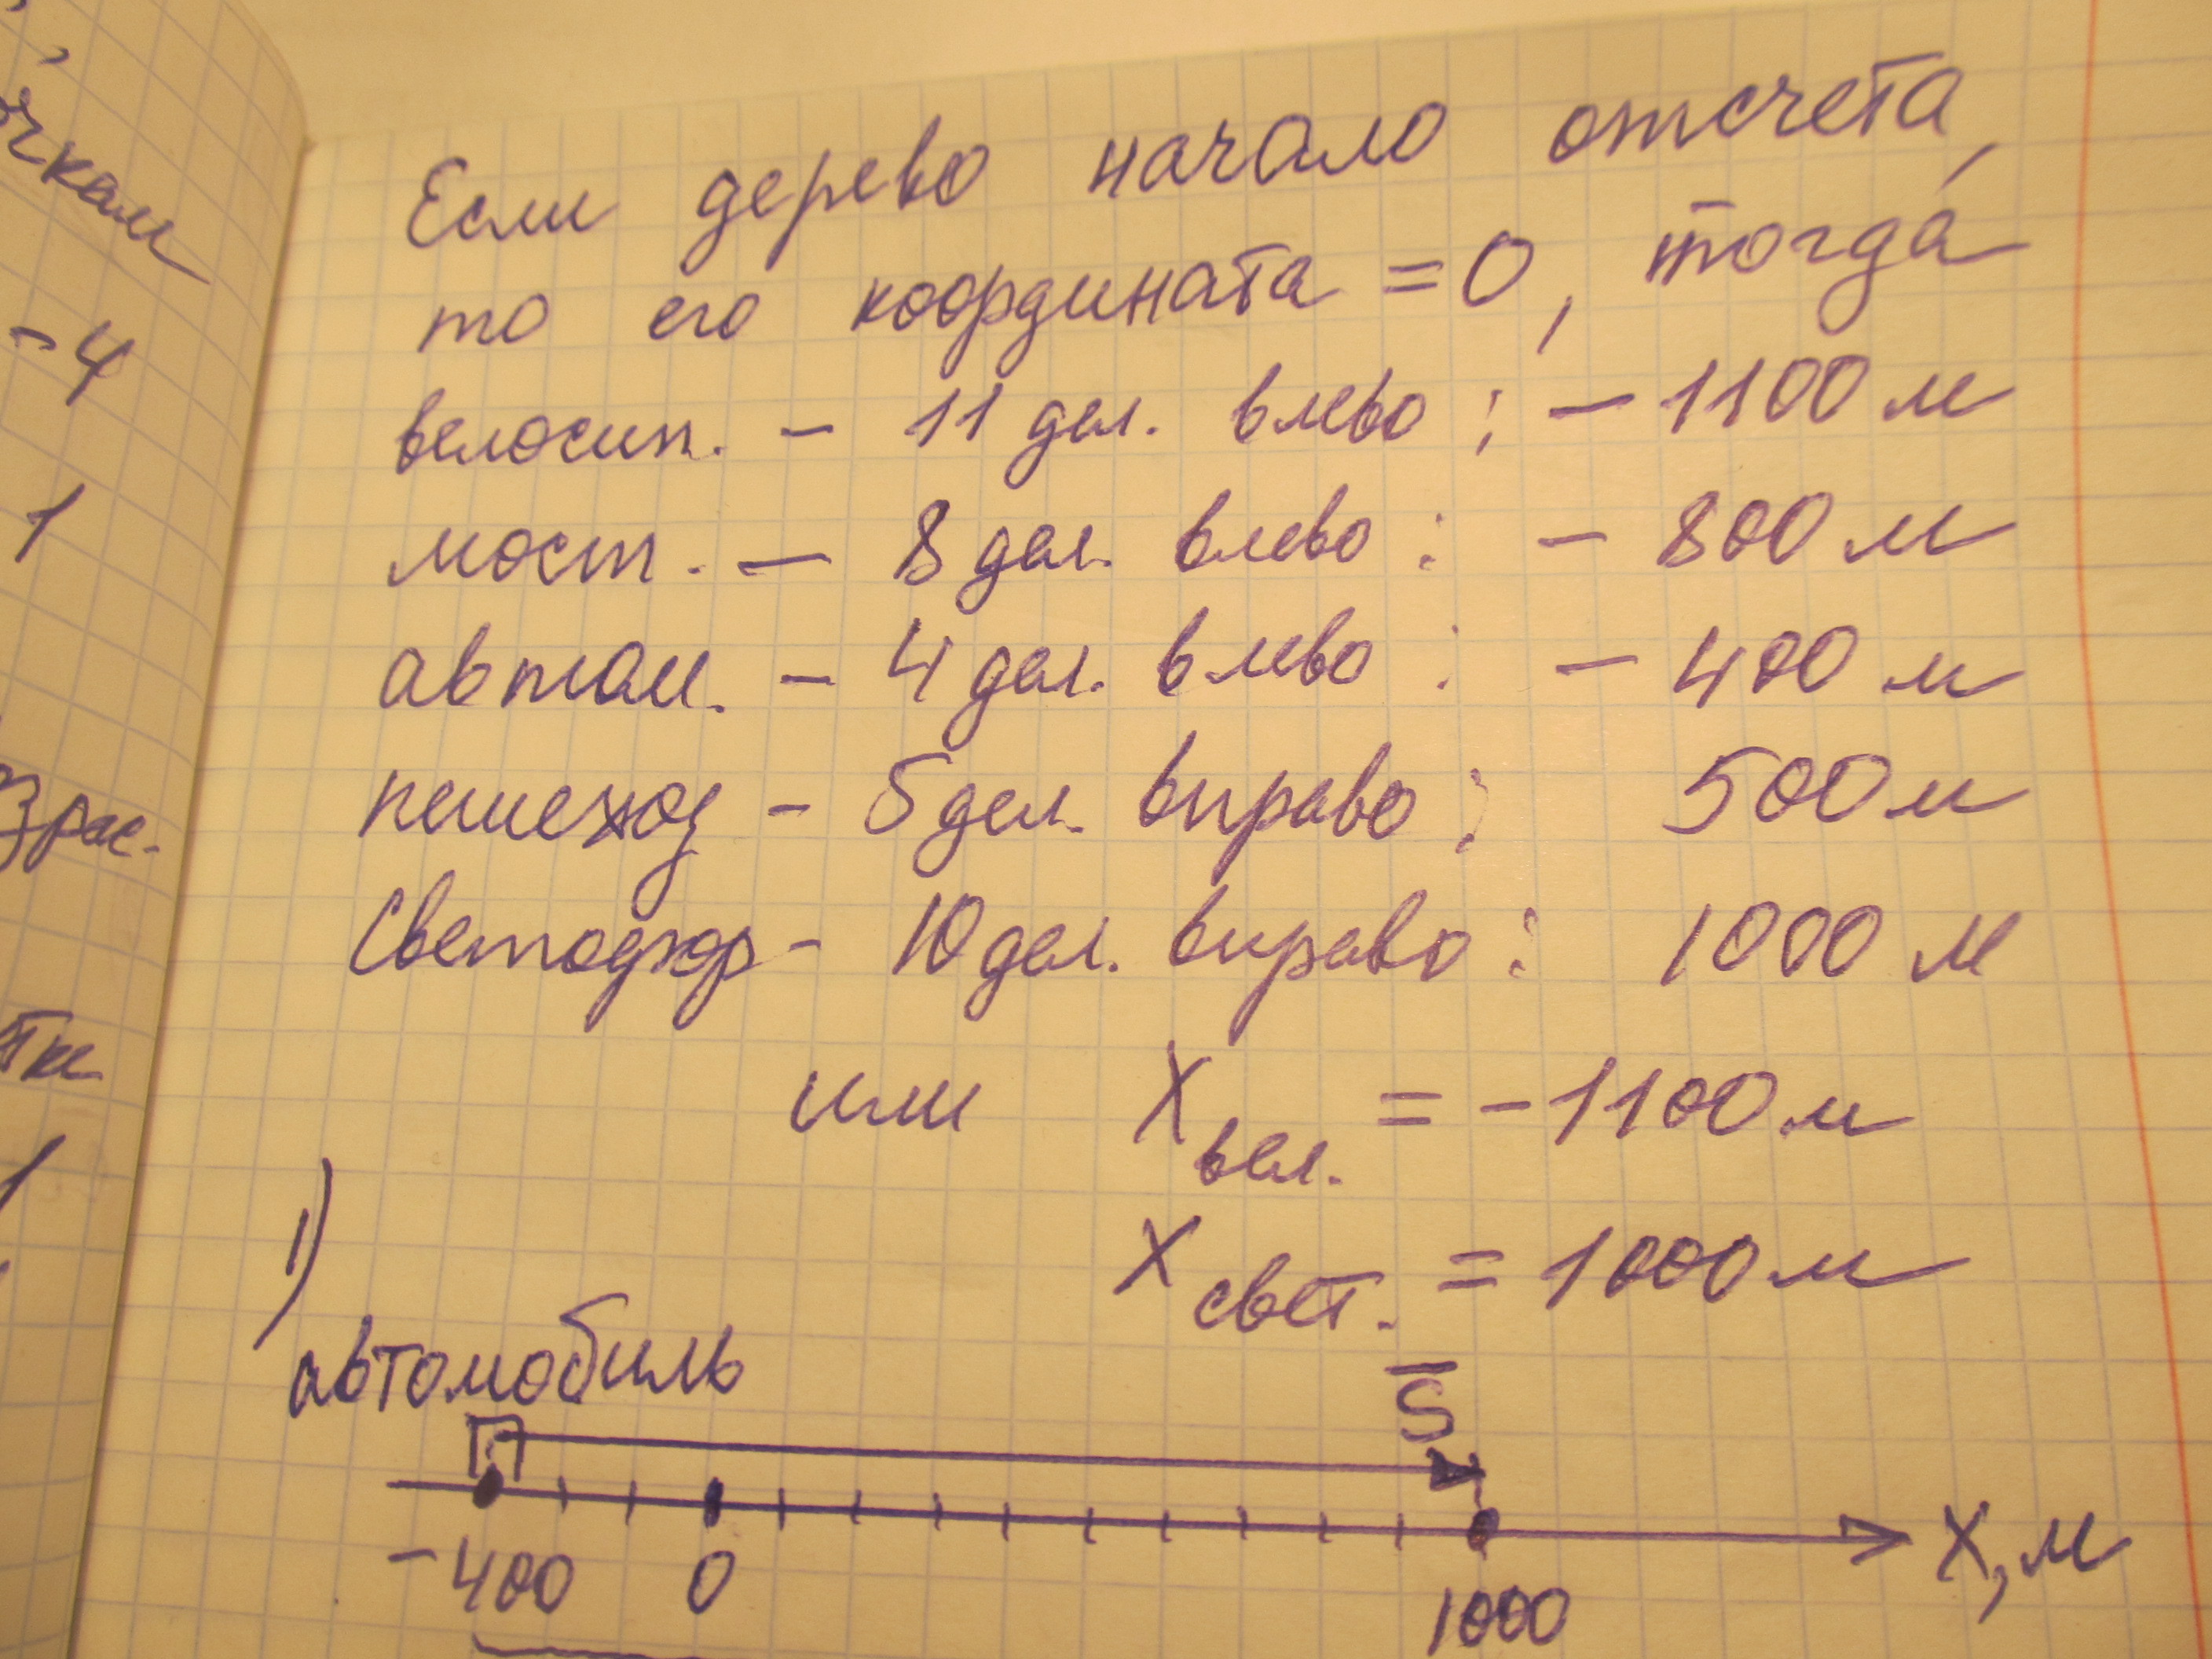 чкам
-4
1
Зрас.
тке
Если дерево начало отсчета,
то его координата = 0, тогда
велосип. - 11 дел. влево : - 1100 м
мост. - 8 дел. влево : - 800 м
автом. - 4 дел. влево : - 400 м
пешеход - 5 дел. вправо : 500 м
Светофор - 10 дел. вправо : 1000 м
или Xвел. = -1100 м
Xсвет. = 1000 м
1)
автомобиль
S
-400 0 1000 X, м